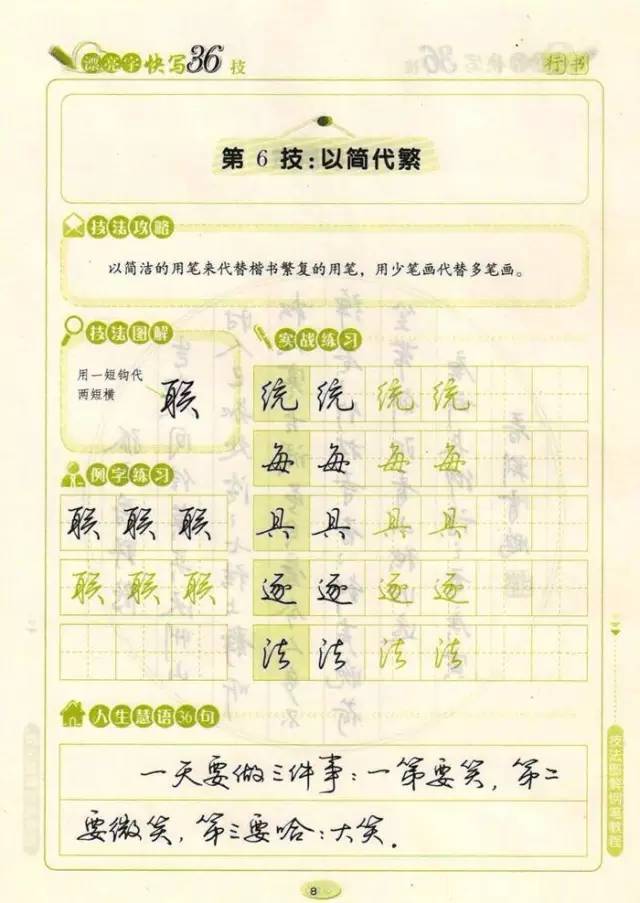 漂亮字快写36技
行书
第6技:以简代繁
技法攻略
以简洁的用笔来代替楷书繁复的用笔，用少笔画代替多笔画。
技法图解
用一短钩代
两短横
联
实战练习
统 统 统 统
每 每 每 每
具 具 具 具
逐 逐 逐 逐
法 法 法 法
例字练习
联 联 联
联 联 联
人生慧语36句
一天要做三件事:一第要笑，第二
要微笑，第三要哈:大笑.
技法图解钢笔教程
8